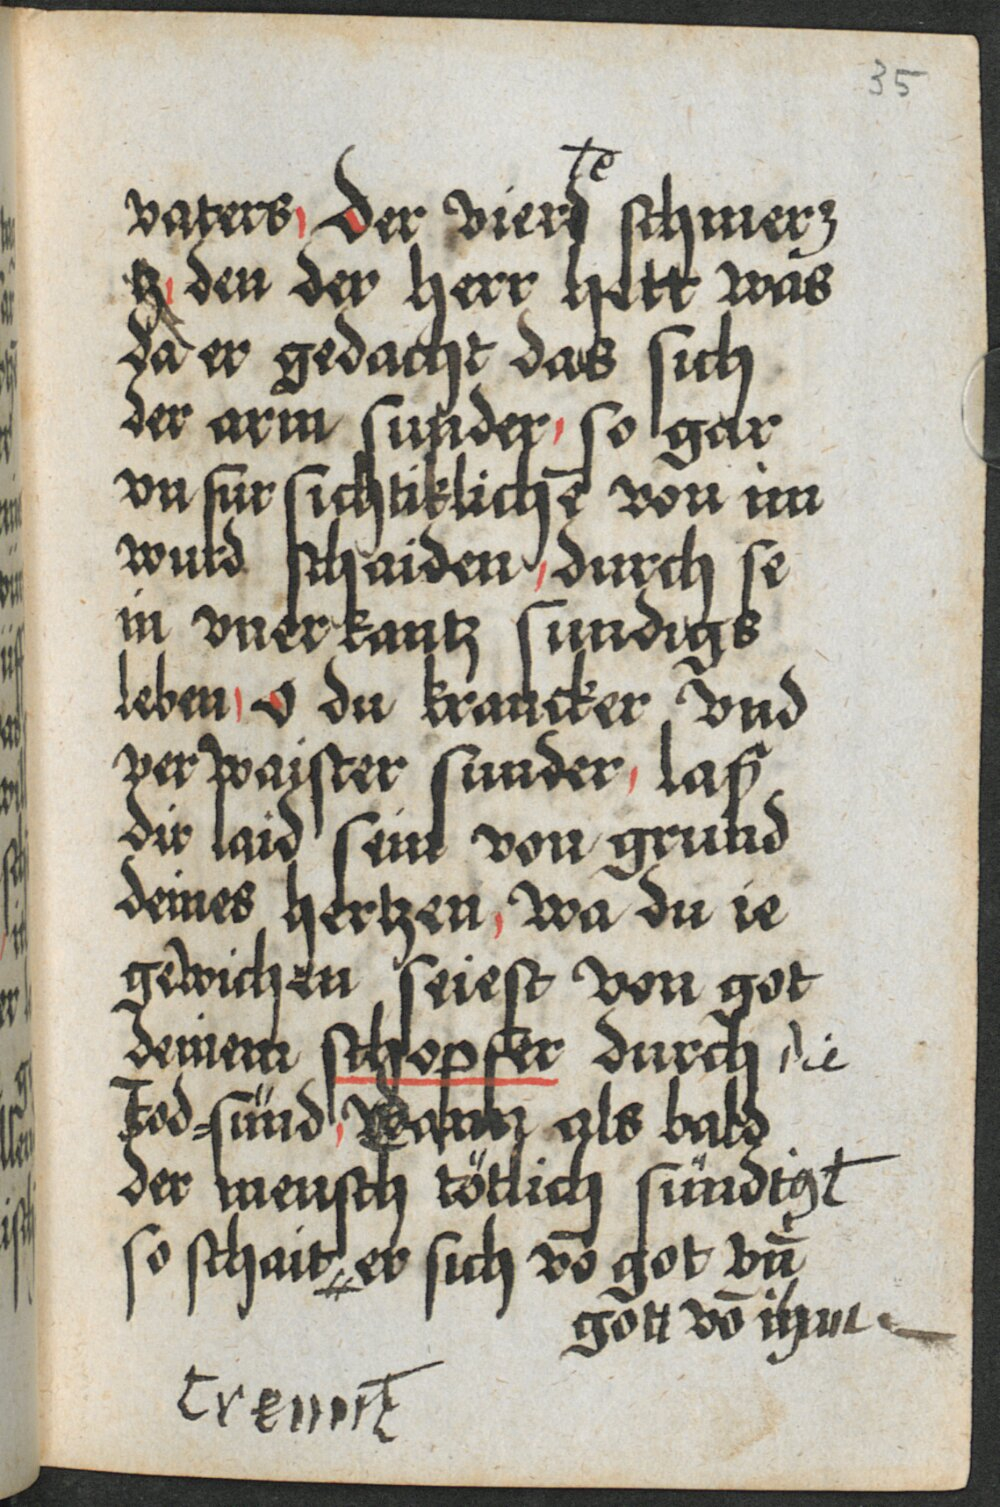 35
vaters, Der vierdte schmerz
tz, den der herr hett was
da er gedacht das sich
der arm sunder, so gar
vn fur sichtiklichē von im
wurd schaiden, durch se
in vnerkantz sundigs
leben, O du krancker vnd
verwaister sunder, laß
dir laid sein von grund
deines hertzen, wa du ie
gewichen seiest von got
deinem schopfer durch die
Tod=sünd, Wann als bald
der mensch tötlich sündigt
so schait er sich vō got vn̄
gott vō ihm
trennt